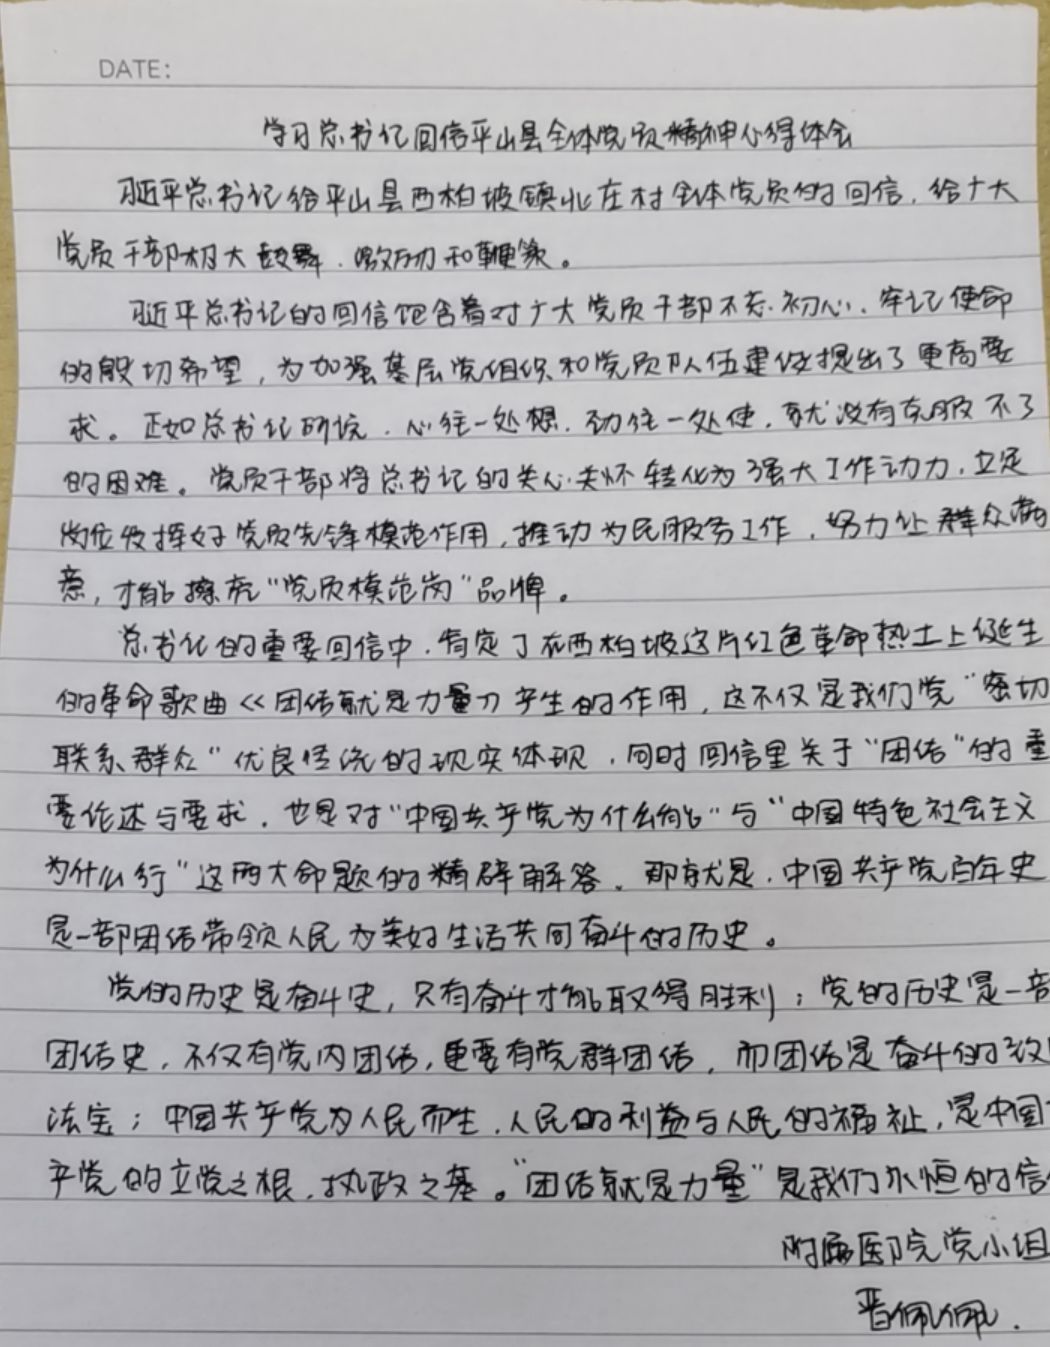 DATE:
学习总书记回信平山县全体党员精神心得体会
习近平总书记给平山县西柏坡镇北庄村全体党员的回信，给广大
党员干部极大鼓舞、激励和鞭策。
习近平总书记的回信饱含着对广大党员干部不忘初心、牢记使命
的殷切希望，为加强基层党组织和党员队伍建设提出了更高要
求。正如总书记所说，心往一处想，劲往一处使，就没有克服不了
的困难。党员干部将总书记的关心关怀转化为强大工作动力，立足
岗位发挥好党员先锋模范作用，推动为民服务工作，努力让群众满
意，才能擦亮“党员模范岗”品牌。
总书记的重要回信中，肯定了在西柏坡这片红色革命热土上诞生
的革命歌曲《团结就是力量》产生的作用，这不仅是我们党“密切
联系群众”优良传统的现实体现，同时回信里关于“团结”的重
要论述与要求，也是对“中国共产党为什么能”与“中国特色社会主义
为什么行”这两大命题的精辟解答。那就是，中国共产党百年史
是一部团结带领人民为美好生活共同奋斗的历史。
党的历史是奋斗史，只有奋斗才能取得胜利；党的历史是一部
团结史，不仅有党内团结，更要有党群团结，而团结是奋斗的致
法宝；中国共产党为人民而生，人民的利益与人民的福祉，是中国
产党的立党之根，执政之基。“团结就是力量”是我们永恒的信
附属医院党小组
晋佩佩.